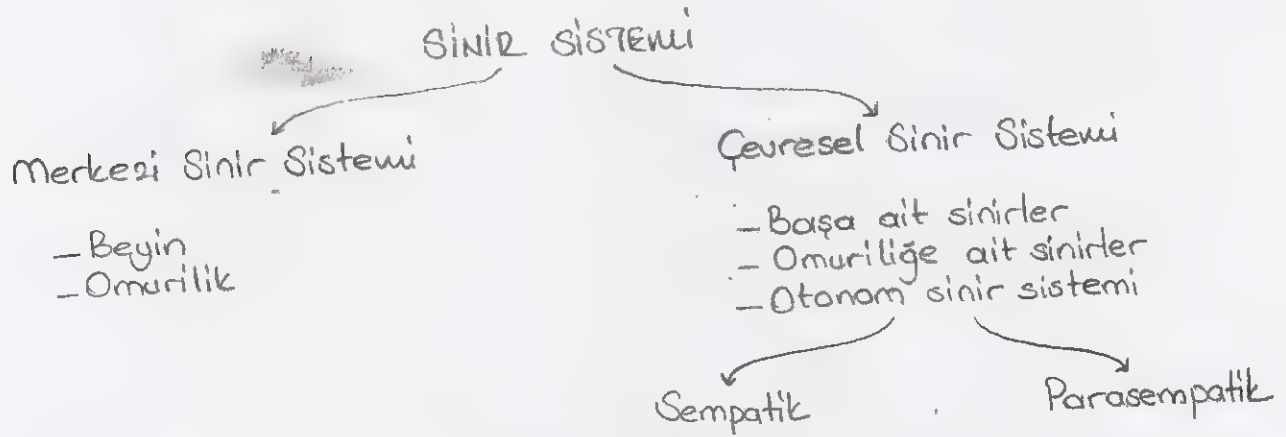 SİNİR SİSTEMİ
Merkezi Sinir Sistemi
- Beyin
- Omurilik
Çevresel Sinir Sistemi
- Başa ait sinirler
- Omuriliğe ait sinirler
- Otonom sinir sistemi
Sempatik
Parasempatik